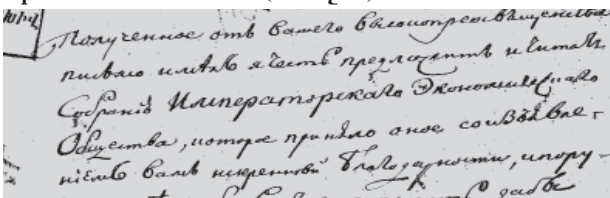 Полученное отъ вашего высокопреосвященства
письмо имѣлъ я честь предложить и читать
Собранію Императорскаго Экономическаго
Общества, которое приняло оное со изъявле-
ніемъ вамъ искренной благодарности, и пору-